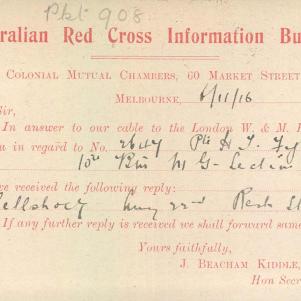 Pkt 908
ralian Red Cross Information Bu
Colonial Mutual Chambers, 60 Market Street
Melbourne, 6/11/16
Sir,
In answer to our cable to the London W. & M. I
u in regard to No. 2647 Pte H. T.
10th M G-Section
ve received the following reply:
ellshock 22nd
If any further reply is received we shall forward same
Yours faithfully,
J. Beacham Kiddle,
Hon Secre